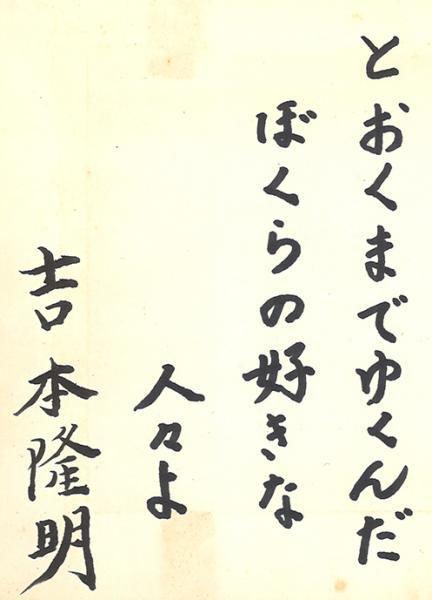 とおくまでゆくんだ
ぼくらの好きな
人々よ
吉本隆明